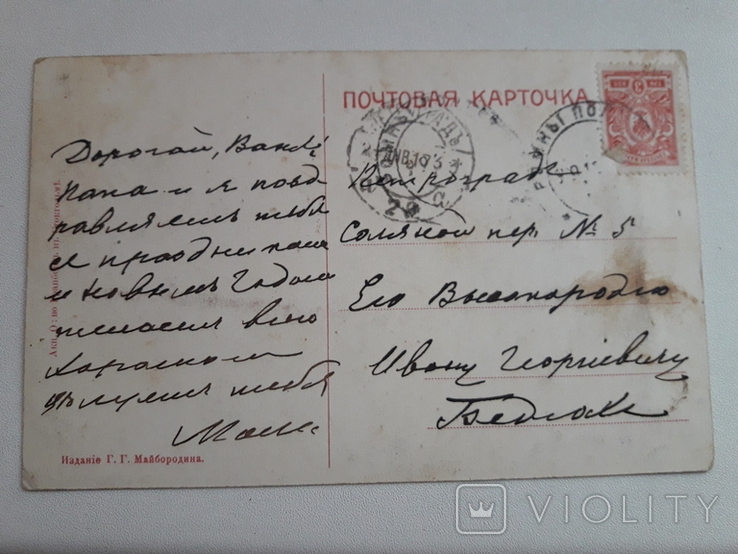 ПОЧТОВАЯ КАРТОЧКА
Дорогой, Ваня!
папа и я позд
равляемъ тебя
с праздниками
и новымъ Годомъ
желаемъ всего
хорошаго
цѣлуемъ тебя
Мама
Петроградъ
Соляной пер. № 5
Его Высокородію
Ивану Георгіевичу
Изданіе Г. Г. Майбородина.
VIOLITY